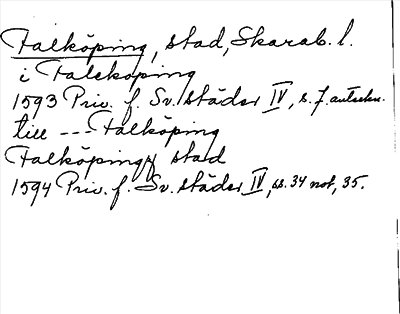 Falköping, stad, Skarab. l.
i Falekoping
1593 Priv. f. Sv. städer IV, s. 7. avtschn.
till --- Falköping
Falköpingz stad
1594 Priv. f. Sv. städer IV, ss. 34 not, 35.